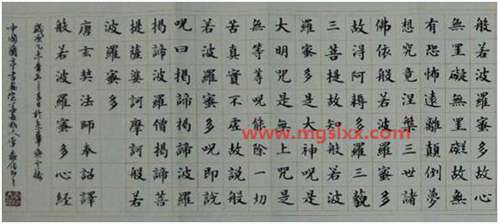 般若波羅蜜多故心
無罣礙無罣礙故無
有恐怖遠離顛倒夢
想究竟涅槃三世諸
佛依般若波羅蜜多
故得阿耨多羅三藐
三菩提故知般若波
羅蜜多是大神咒是
大明咒是無上咒是
無等等咒能除一切
苦真實不虛故說般
若波羅蜜多咒即說
咒曰揭諦揭諦波羅
揭諦波羅僧揭諦菩
提薩婆訶摩訶般若
波羅蜜多
唐玄奘法師奉詔譯
般若波羅蜜多心經
歲次乙未年五月吉日於
中國蘭亭書畫
www.mgslxx.com